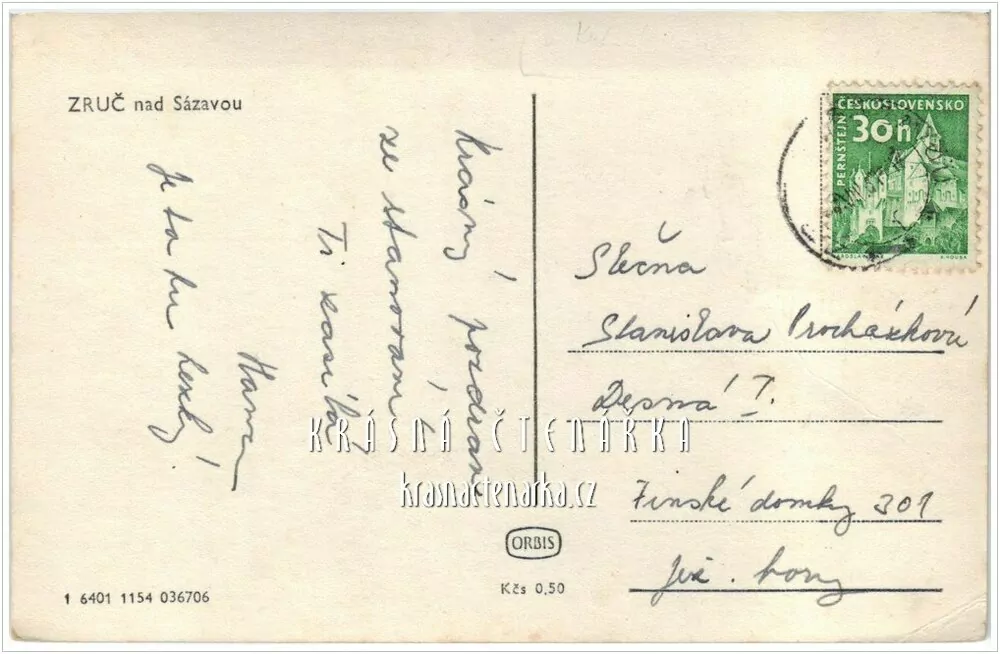 ZRUČ nad Sázavou
Krásný pozdrav
ze stanování
Ti zasílá
Hana
Je to tu hezký!
ČESKOSLOVENSKO
30h
PERNŠTEJN
Slečna
Stanislava Procházková
Desná I.
Finské domky 301
Jiz. hory
KRÁSNÁ ČTENÁŘKA
krasnactenarka.cz
ORBIS
Kčs 0,50
1 6401 1154 036706